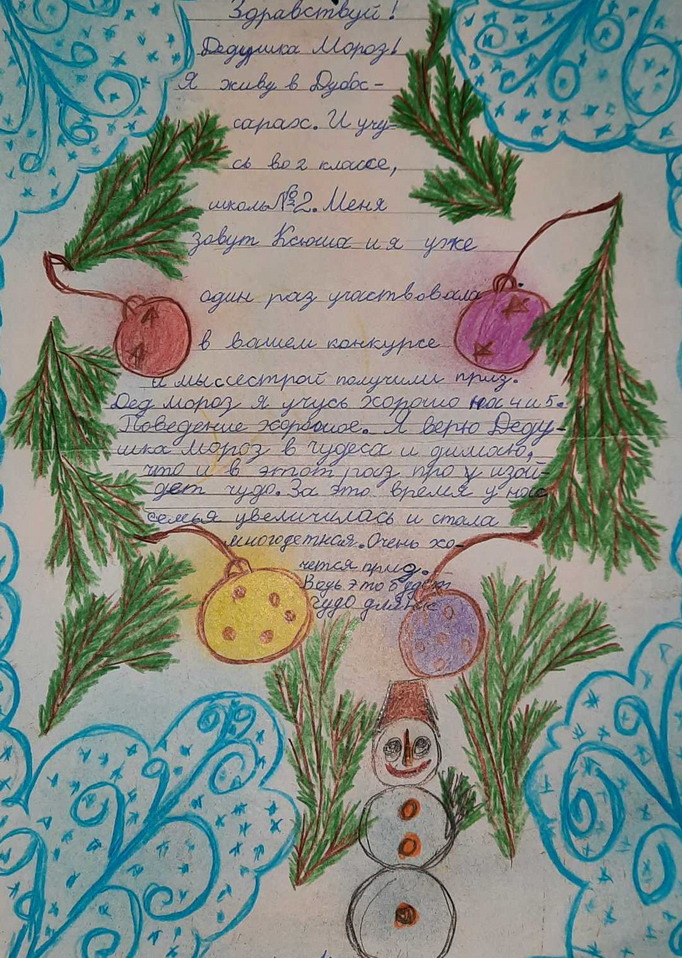 Здравствуй!
Дедушка Мороз!
Я живу в Дубос-
сарах. И учу-
сь во 2 классе,
школы №2. Меня
зовут Ксюша и я уже
один раз участвовала
в вашем конкурсе
и мы с сестрой получили приз.
Дед мороз я учусь хорошо на 4 и 5.
Поведение хорошое. Я верю Деду-
шка Мороз в чудеса и думаю,
что и в этот раз про у изой-
дет чудо. За это время у нас
семья увеличилась и стала
многодетная. Очень хо-
чется приз.
Ведь это будет
чудо для нас